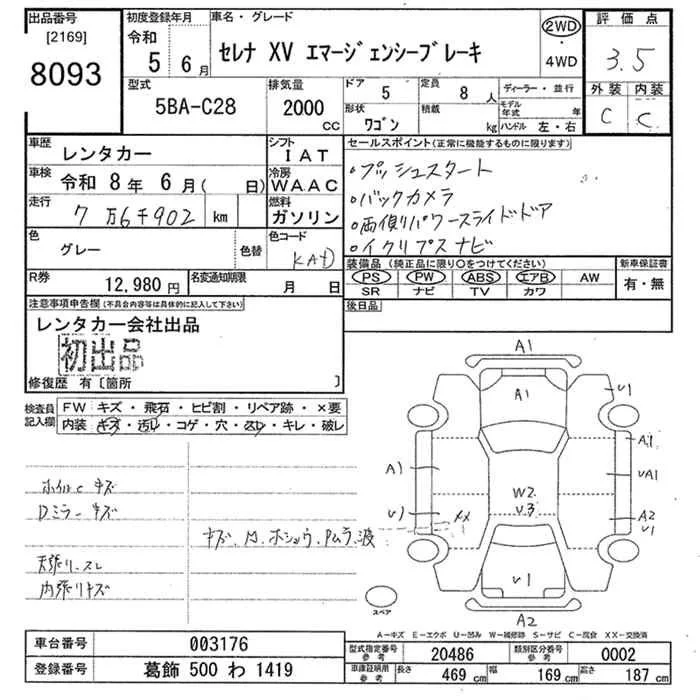 出品番号 初度登録年月 車名・グレード 評価点
[2169] 令和 2WD
8093 5 6月 セレナ XV エマージェンシーブレーキ ・ 3.5
4WD
型式 排気量 ドア 5 定員 8人 ディーラー・並行 外装 内装
5BA-C28 2000 cc 形状 ワゴン 積載 kg モデル年式 年 C C
ハンドル 左・右
車歴 レンタカー シフト IAT セールスポイント(正常に機能するものに限ります)
車検 令和 8年 6月( 日) 冷房 WAAC ・プッシュスタート
走行 7万6千902 km 燃料 ガソリン ・バックカメラ
色 グレー 色替 色コード ・両側パワースライドドア
KAD ・イクリプスナビ
R券 12,980円 名変通知期限 月 日 装備品(純正品に限り○をつけてください) 新車保証書
PS PW ABS エアB AW 有・無
SR ナビ TV カワ
注意事項申告欄(不具合内容等は具体的に記入して下さい) 後日品
レンタカー会社出品
初出品
修復歴 有〔箇所 〕
検査員記入欄 FW キズ・飛石・ヒビ割・リペア跡・×要
内装 キズ・汚れ・コゲ・穴・スレ・キレ・破レ
A1
A1 U1
A1 A1
UA1
W2
U3
U1 XX A2
U1
U1
A2
ホイルcキズ
Dミラーキズ
キズ、凹、ホショウ、Pムラ、波
天張リ、スレ
内張リキズ
スペア
A-キズ E-エクボ U-凹み W-補修跡 S-サビ C-腐食 XX-交換済
車台番号 003176 型式指定番号 参考 20486 類別区分番号 参考 0002
登録番号 葛飾 500 わ 1419 車庫証明用 参考 長さ 469 cm 幅 169 cm 高さ 187 cm